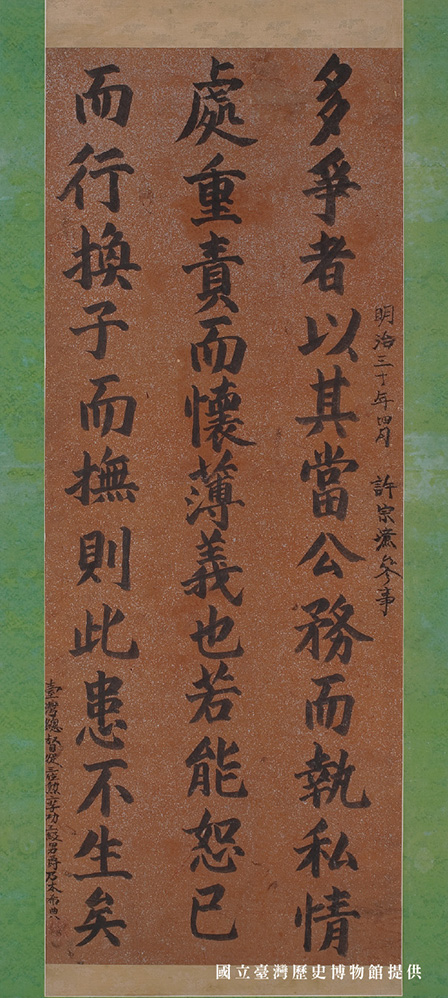 明治三十年四月 許宗參事
多爭者以其當公務而執私情
處重責而懷薄義也若能恕已
而行換子而撫則此患不生矣
臺灣總督從三位勲二等功三級男爵乃木希典
國立臺灣歷史博物館提供